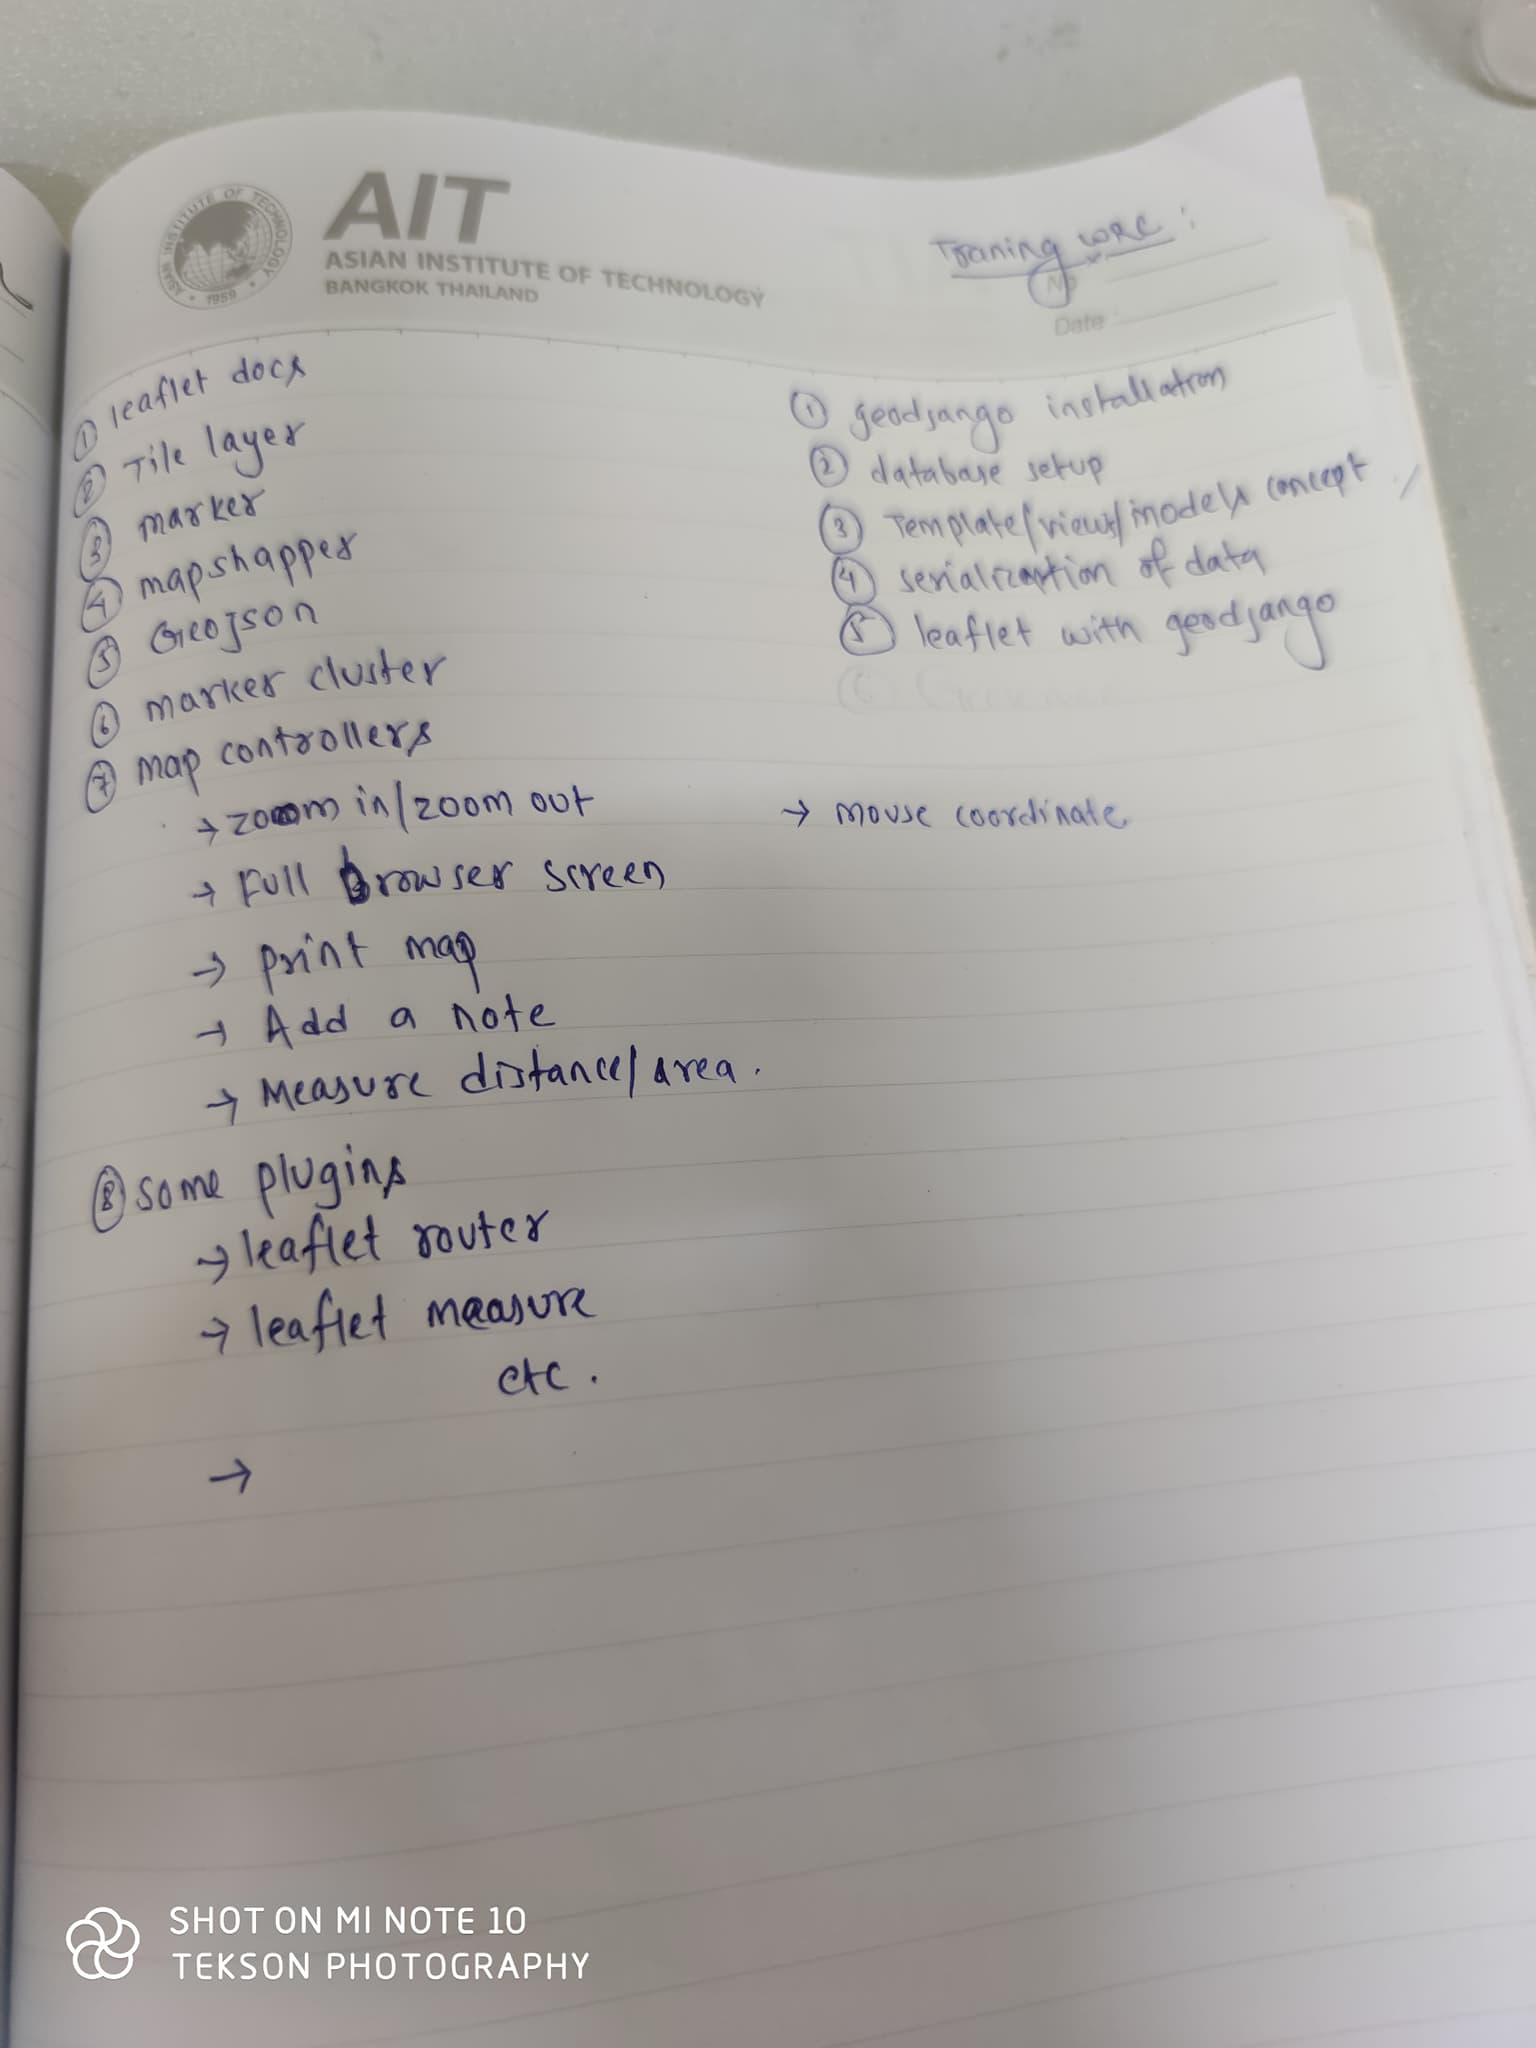 AIT
ASIAN INSTITUTE OF TECHNOLOGY
BANGKOK THAILAND
ASIAN INSTITUTE OF TECHNOLOGY
1959
Traning WRC :
No
Date
① leaflet docs
② Tile layer
③ marker
④ mapshapper
⑤ Geojson
⑥ marker cluster
⑦ map controllers
→ zoom in/zoom out
→ Full browser screen
→ print map
→ Add a note
→ Measure distance/area.
→ mouse coordinate
⑧ some plugins
→ leaflet router
→ leaflet measure
etc.
→
① geodjango installation
② database setup
③ Template/views/models concept
④ serialization of data
⑤ leaflet with geodjango
SHOT ON MI NOTE 10
TEKSON PHOTOGRAPHY